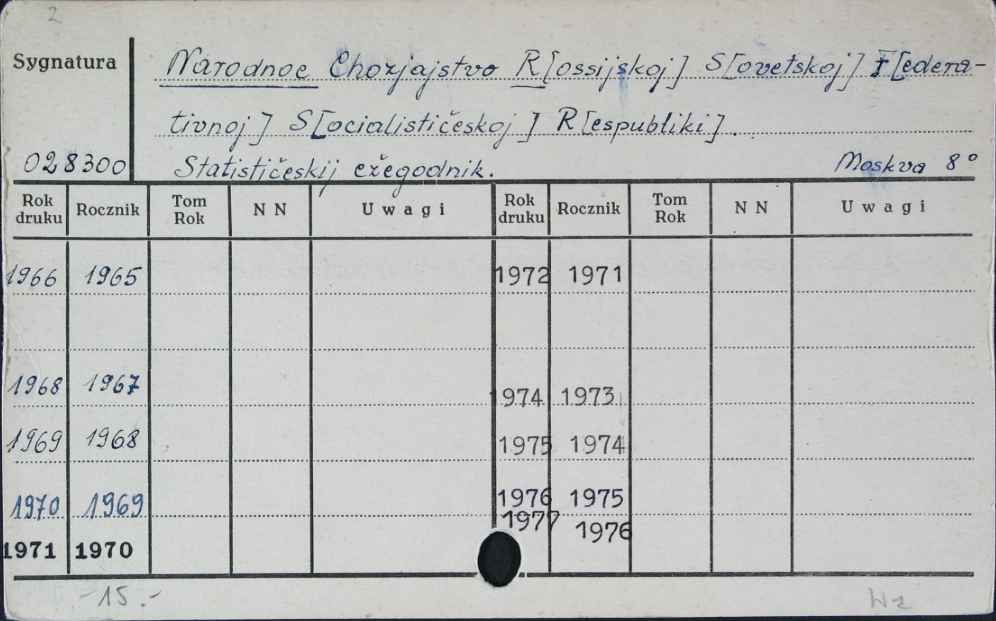 2
Sygnatura
Narodnoe Chozjajstvo R[ossijskoj] S[ovetskoj] F[edera-
tivnoj] S[ocialističeskoj] R[espubliki].
028300 Statističeskij ežegodnik. Moskva 8°
Rok druku Rocznik Tom Rok N N Uwagi Rok druku Rocznik Tom Rok N N Uwagi
1966 1965 1972 1971
1968 1967 1974 1973
1969 1968 1975 1974
1970 1969 1976 1975
1977 1976
1971 1970
-15.-